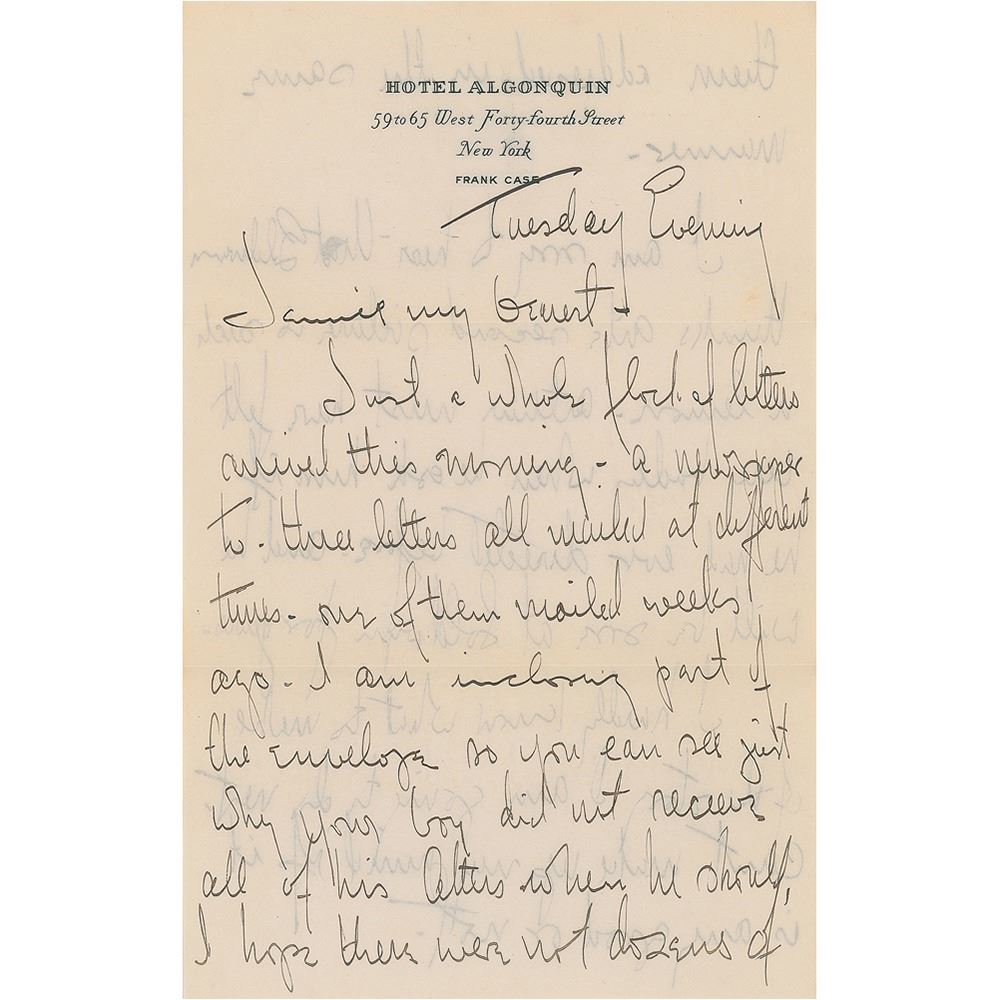 HOTEL ALGONQUIN
59 to 65 West Forty-fourth Street
New York
FRANK CASE
Tuesday Evening
my dearest -
Just a whole flock of letters
arrived this morning - a newspaper
to - three letters all mailed at different
times - one of them mailed weeks
ago - I am inclosing part of
the envelope so you can see just
why your boy did not receive
all of his letters when he should,
I hope there were not dozens of